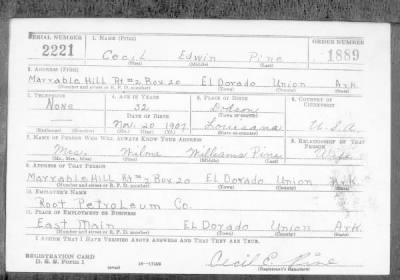 SERIAL NUMBER 1. NAME (Print) ORDER NUMBER
2221 Cecil Edwin Pine 1889
(First) (Middle) (Last)
2. ADDRESS (Print)
Marrable Hill Rt #2 Box 20 El Dorado Union Ark.
(Number and street or R. F. D. number) (Town) (County) (State)
3. TELEPHONE 4. AGE IN YEARS 5. PLACE OF BIRTH 6. COUNTRY OF CITIZENSHIP
None 32 Dodson
DATE OF BIRTH (Town or county)
Nov. 20 1907 Louisiana U.S.A.
(Exchange) (Number) (Mo.) (Day) (Yr.) (State or country)
7. NAME OF PERSON WHO WILL ALWAYS KNOW YOUR ADDRESS 8. RELATIONSHIP OF THAT PERSON
Mrs. Wilma Williams Pine Wife
(Mr., Mrs., Miss) (First) (Middle) (Last)
9. ADDRESS OF THAT PERSON
Marrable Hill Rt #2 Box 20 El Dorado Union Ark.
(Number and street or R. F. D. number) (Town) (County) (State)
10. EMPLOYER'S NAME
Root Petroleum Co.
11. PLACE OF EMPLOYMENT OR BUSINESS
East Main El Dorado Union Ark.
(Number and street or R. F. D. number) (Town) (County) (State)
I AFFIRM THAT I HAVE VERIFIED ABOVE ANSWERS AND THAT THEY ARE TRUE.
REGISTRATION CARD
D. S. S. Form 1 Cecil E. Pine
(over) (Registrant's signature)